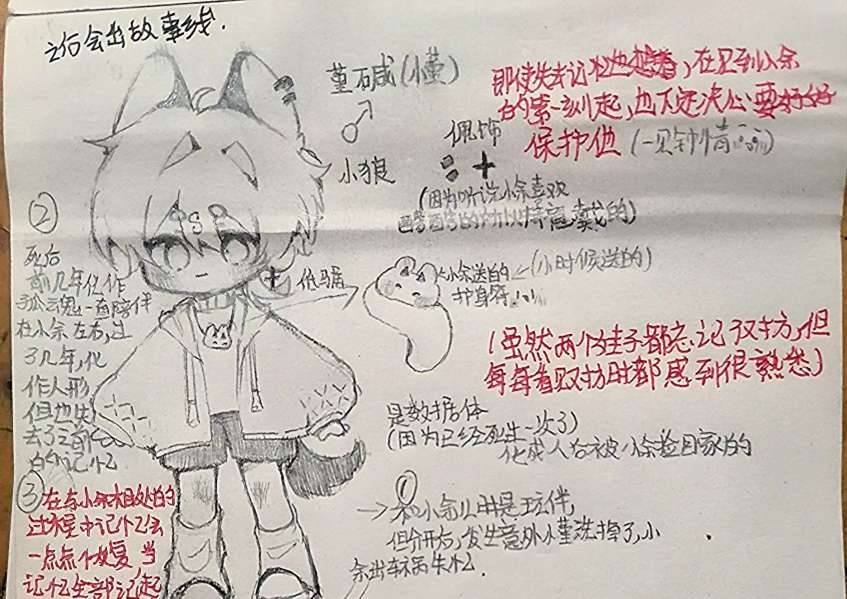 之后会出故事线.
堇碱(小堇)
♂
小狼
佩饰
(因为听说小余喜欢
戴的)
即使失去记忆也想着,在见到小余
的第一刻起,也下定决心要好好
保护他(一见钟情
低马尾
小余送的
护身符
(小时候送的)
(虽然两个娃子都忘记双方,但
每每看双方时都感到很熟悉)
是数据体
(因为已经死一次了)
化成人后被小余捡回家的
①
和小余儿时是玩伴,
但分开后,发生意外小堇洗掉了,小
余出车祸失忆.
②
死后
前几年化作
孤魂一直陪伴
在小余左右,过
了几年,化
作人形
但也失
去了之前
的记忆
③在与小余相处的
过程中记忆会
一点点恢复,当
记忆全部记起